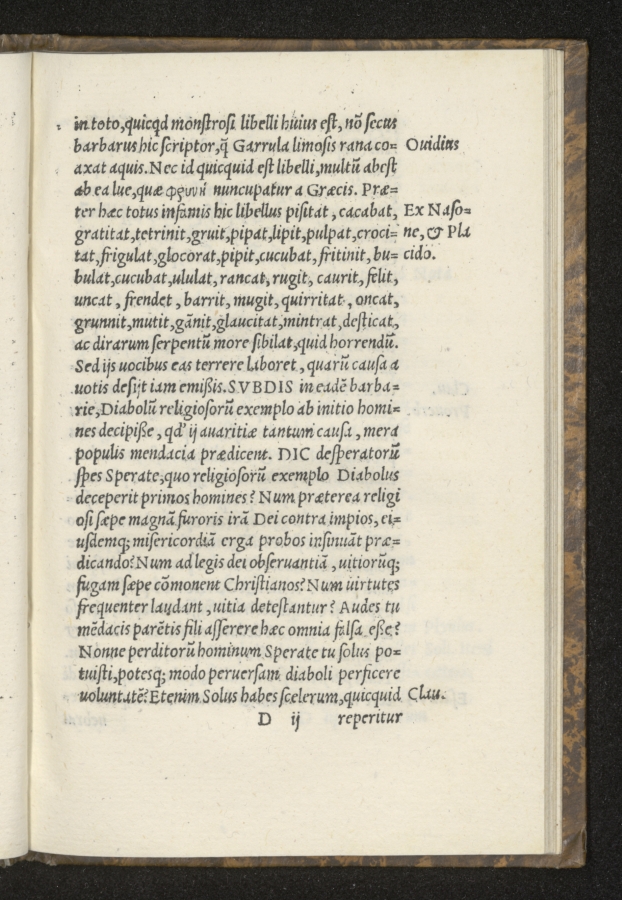 in toto,quicqd mõnstrosi libelli huius est, nõ secus
barbarus hic scriptor,q̃ Garrula limosis rana co= Ouidius
axat aquis. Nec id quicquid est libelli, multũ abest
ab ea lue, quæ φρυνή nuncupatur a Græcis. Præ=
ter hæc totus infamis hic libellus pisitat, cacabat, Ex Naso=
gratitat,tetrinit,gruit,pipat,lipit,pulpat,croci= ne, & Pla
tat,frigulat,glocorat,pipit,cucubat,fritinit, bu= cido.
bulat,cucubat,ululat, rancat, rugit, caurit, felit,
uncat, frendet, barrit, mugit, quirritat, oncat,
grunnit,mutit,gãnit,glaucitat,mintrat,desticat,
ac dirarum serpentũ more sibilat,quid horrendũ.
Sed ijs uocibus eas terrere laboret, quarũ causa a
uotis desijt iam emißis. SVBDIS in eadẽ barba=
rie,Diabolũ religiosorũ exemplo ab initio homi=
nes decipiße, qd' ij auaritiæ tantum causa, mera
populis mendacia prædicent. DIC desperatorũ
spes Sperate,quo religiosorũ exemplo Diabolus
deceperit primos homines? Num præterea religi
osi sæpe magnã furoris irã Dei contra impios, ei=
usdemq; misericordiã erga probos insinuãt præ=
dicando? Num ad legis dei obseruantiã, uitiorũq;
fugam sæpe cõmonent Christianos? Num uirtutes
frequenter laudant, uitia detestantur? Audes tu
mẽdacis parẽtis fili asserere hæc omnia falsa eße?
Nonne perditorũ hominum Sperate tu solus po=
tuisti,potesq; modo peruersam diaboli perficere
uoluntatẽ? Etenim Solus habes scelerum,quicquid Clau.
D ij reperitur